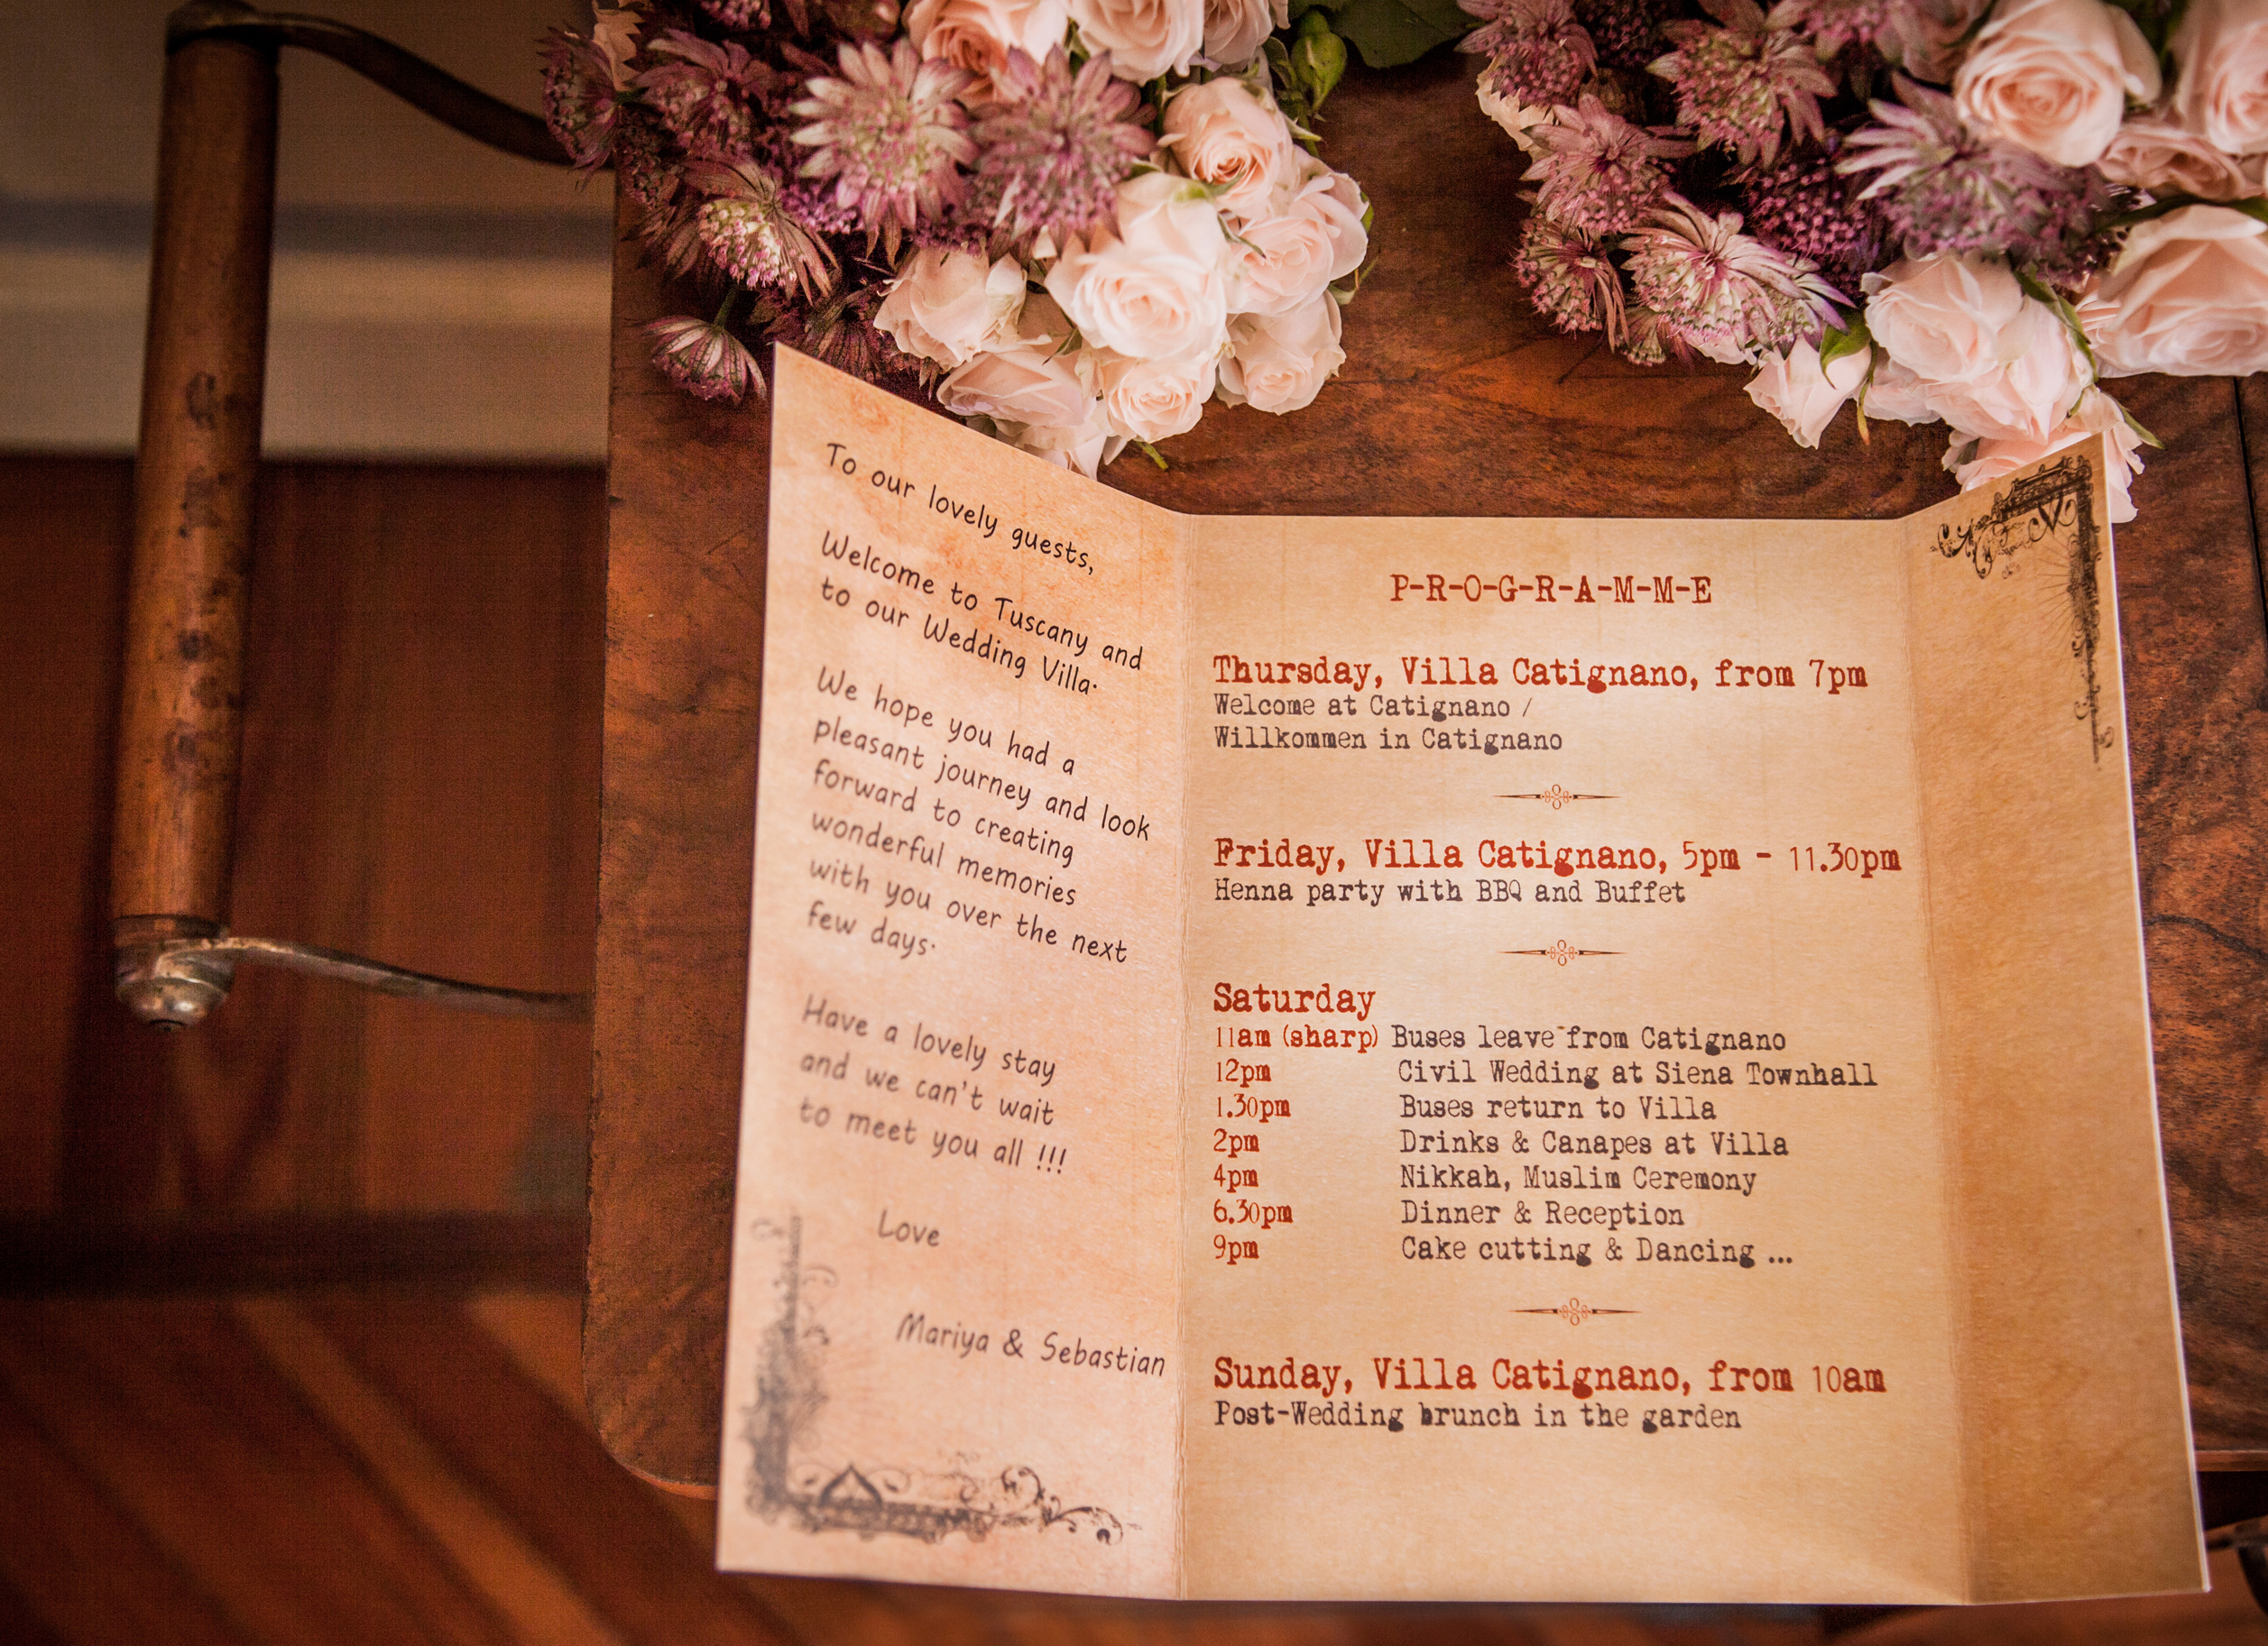 To our lovely guests,
Welcome to Tuscany and
to our Wedding Villa.
We hope you had a
pleasant journey and look
forward to creating
wonderful memories
with you over the next
few days.
Have a lovely stay
and we can't wait
to meet you all !!!
Love
Mariya & Sebastian
P-R-O-G-R-A-M-M-E
Thursday, Villa Catignano, from 7pm
Welcome at Catignano /
Willkommen in Catignano
Friday, Villa Catignano, 5pm - 11.30pm
Henna party with BBQ and Buffet
Saturday
11am (sharp) Buses leave from Catignano
12pm Civil Wedding at Siena Townhall
1.30pm Buses return to Villa
2pm Drinks & Canapes at Villa
4pm Nikkah, Muslim Ceremony
6.30pm Dinner & Reception
9pm Cake cutting & Dancing ...
Sunday, Villa Catignano, from 10am
Post-Wedding brunch in the garden